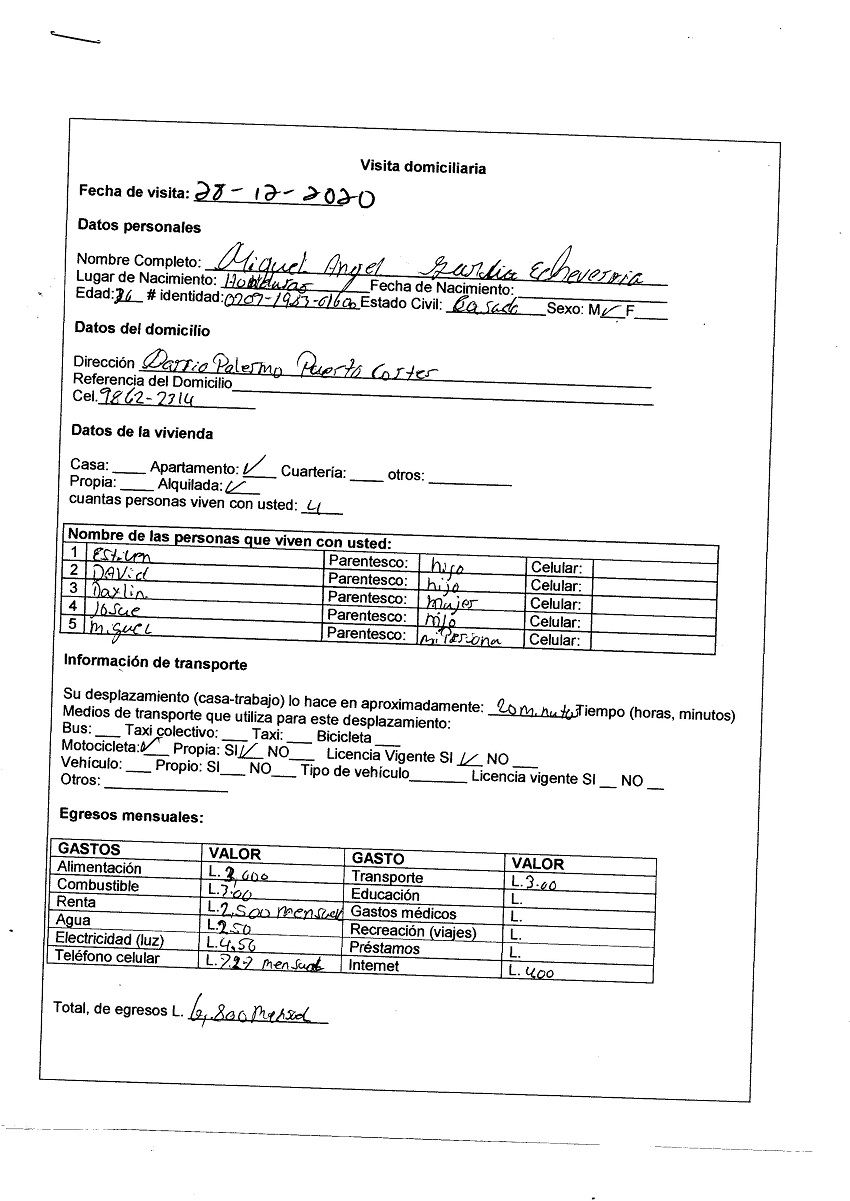 Visita domiciliaria
Fecha de visita: 28-12-2020
Datos personales
Nombre Completo: Miguel Angel Echeverria
Lugar de Nacimiento: Honduras Fecha de Nacimiento:
Edad: 36 # identidad: Estado Civil: Casado Sexo: M✓ F
Datos del domicilio
Dirección Barrio Palermo Puerto Cortes
Referencia del Domicilio
Cel. 9862-2314
Datos de la vivienda
Casa: ____ Apartamento: ✓ Cuartería: ____ otros: ____
Propia: ____ Alquilada: ✓
cuantas personas viven con usted: 4
Nombre de las personas que viven con usted:
1 Estiven Parentesco: hijo Celular:
2 DAVid Parentesco: hijo Celular:
3 Daxlin Parentesco: mujer Celular:
4 Josue Parentesco: hijo Celular:
5 Miguel Parentesco: mi Persona Celular:
Información de transporte
Su desplazamiento (casa-trabajo) lo hace en aproximadamente: 20 minutos Tiempo (horas, minutos)
Medios de transporte que utiliza para este desplazamiento:
Bus: ___ Taxi colectivo: ___ Taxi: ___ Bicicleta ___
Motocicleta: ✓ Propia: SI ✓ NO___ Licencia Vigente SI ✓ NO ___
Vehículo: ___ Propio: SI___ NO___ Tipo de vehículo_______ Licencia vigente SI __ NO __
Otros: ____
Egresos mensuales:
GASTOS VALOR GASTO VALOR
Alimentación L. 2,000 Transporte L. 3.00
Combustible L. 3.00 Educación L.
Renta L. 2,500 mensual Gastos médicos L.
Agua L. 250 Recreación (viajes) L.
Electricidad (luz) L. 4.50 Préstamos L.
Teléfono celular L. mensual Internet L. 400
Total, de egresos L. 6,800 mensual